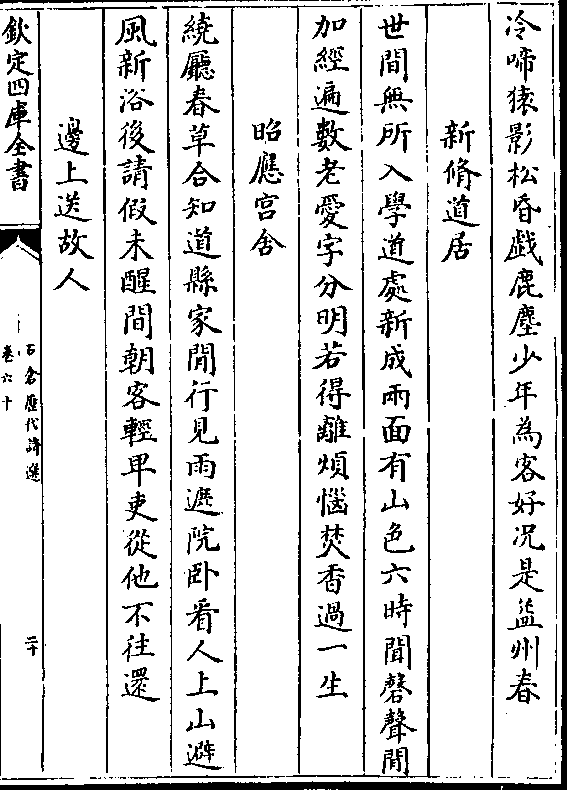 冷啼猿影松昏戲鹿塵少年為客好况是益州春
新脩道居
世間無所入學道處新成兩面有山色六時聞磬聲閒
加經遍數老愛字分明若得離煩惱焚香過一生
昭應宫舍
繞廳春草合知道縣家閒行見雨遮院卧看人上山避
風新浴後請假未醒間朝客輕卑吏從他不往還
邊上送故人
欽定四庫全書
石倉歴代詩選
卷六十
二十